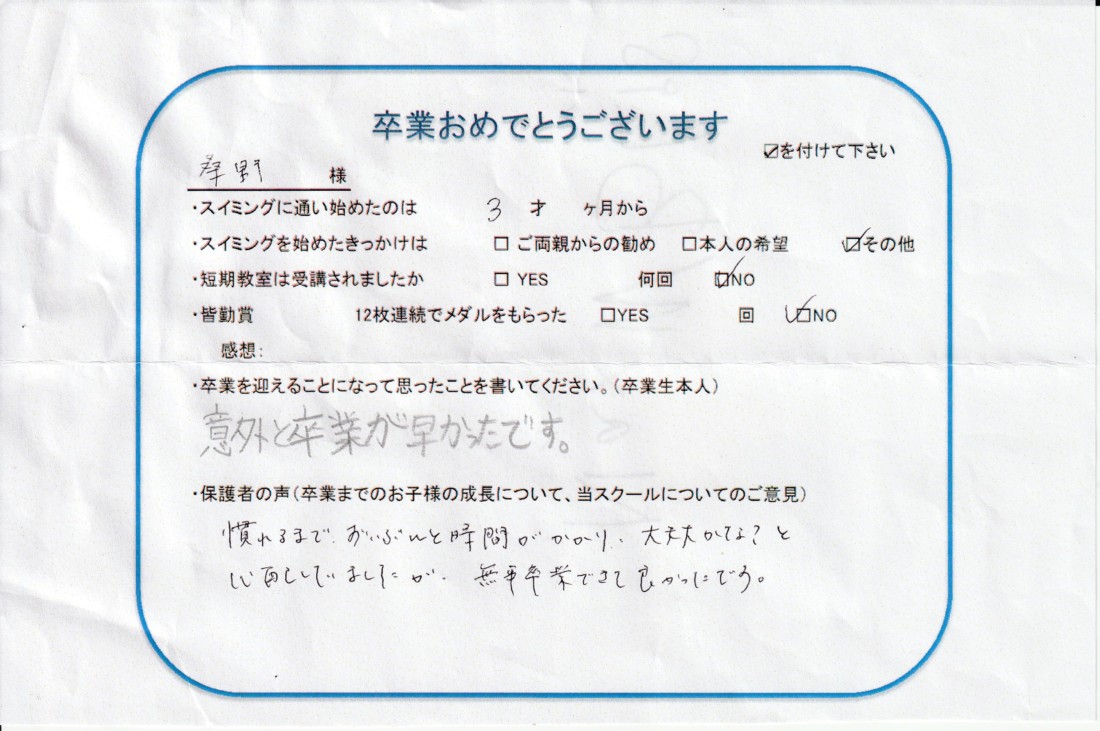 卒業おめでとうございます
☑を付けて下さい
野 様
・スイミングに通い始めたのは 3 才 ヶ月から
・スイミングを始めたきっかけは □ ご両親からの勧め □本人の希望 ☑その他
・短期教室は受講されましたか □ YES 何回 ☑NO
・皆勤賞 12枚連続でメダルをもらった □YES 回 ☑NO
感想:
・卒業を迎えることになって思ったことを書いてください。(卒業生本人)
意外と卒業が早かったです。
・保護者の声(卒業までのお子様の成長について、当スクールについてのご意見)
慣れるまで、ずいぶんと時間がかかり、大丈夫かな?と
心配していましたが、無事卒業できて良かったです。